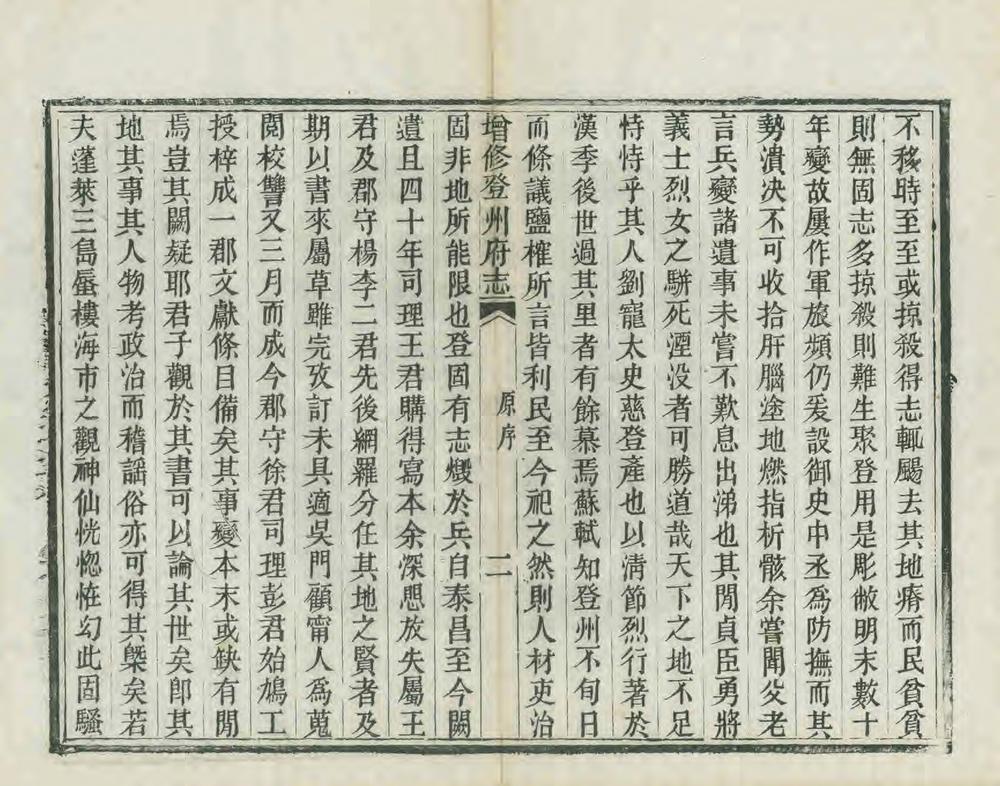 不移時至至或掠殺得志輒颺去其地瘠而民貧貧
則無固志多掠殺則難生聚登用是彫敝明末數十
年變故屢作軍旅頻仍爰設御史中丞爲防撫而其
勢潰決不可收拾肝腦塗地燃指析骸余嘗聞父老
言兵變諸遺事未嘗不歎息出涕也其閒貞臣勇將
義士烈女之駢死湮没者可勝道哉天下之地不足
恃恃乎其人劉寵太史慈登產也以淸節烈行著於
漢季後世過其里者有餘慕焉蘇軾知登州不旬日
而條議鹽榷所言皆利民至今祀之然則人材吏治
增修登州府志 原序 二
固非地所能限也登固有志燬於兵自泰昌至今闕
遺且四十年司理王君購得寫本余深思放失屬王
君及郡守楊李二君先後網羅分任其地之賢者及
期以書來屬草雖完攷訂未具適吳門顧甯人爲蒐
閱校讐又三月而成今郡守徐君司理彭君始鳩工
授梓成一郡文獻條目備矣其事變本末或缺有閒
焉豈其闕疑耶君子觀於其書可以論其世矣卽其
地其事其人物考政治而稽謡俗亦可得其槩矣若
夫蓬萊三島蜃樓海市之觀神仙恍惚恠幻此固騷